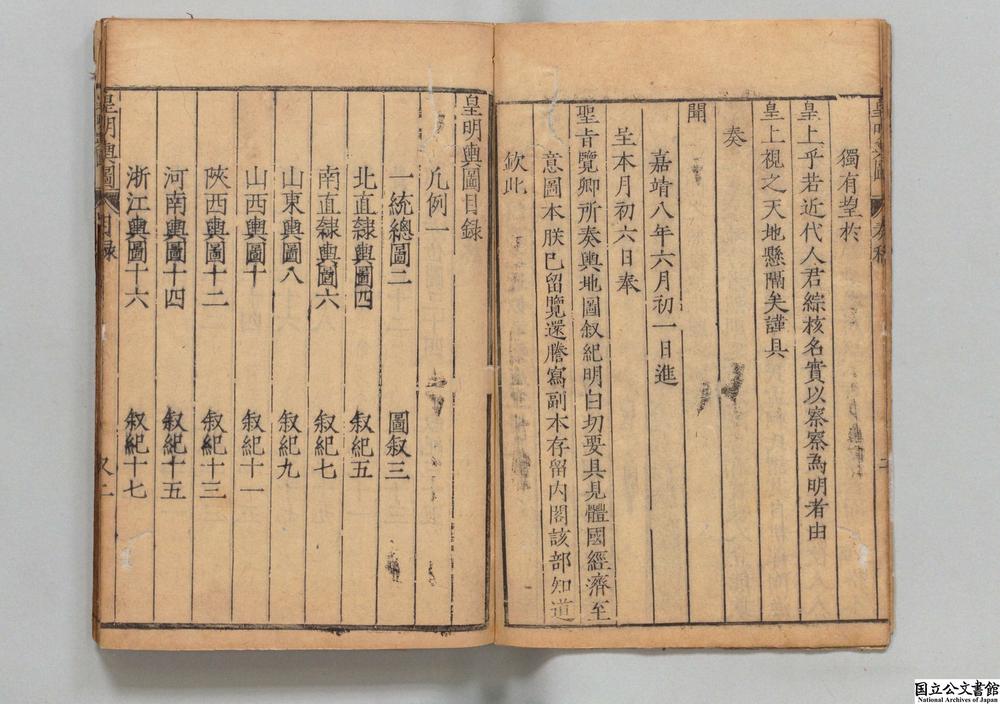 獨有望於
皇上乎若近代人君綜核名實以察察為明者由
皇上視之天地懸隔矣謹具
奏
聞
嘉靖八年六月初一日進
呈本月初六日奉
聖旨覽卿所奏輿地圖叙紀明白切要具見體國經濟至
意圖本朕已留覽還謄寫副本存留內閣該部知道
欽此
皇明輿圖目録
凡例一
一統總圖二 圖叙三
北直隸輿圖四 叙紀五
南直隸輿圖六 叙紀七
山東輿圖八 叙紀九
山西輿圖十 叙紀十一
陝西輿圖十二 叙紀十三
河南輿圖十四 叙紀十五
浙江輿圖十六 叙紀十七
皇明輿圖 目録
国立公文書館
National Archives of Japan